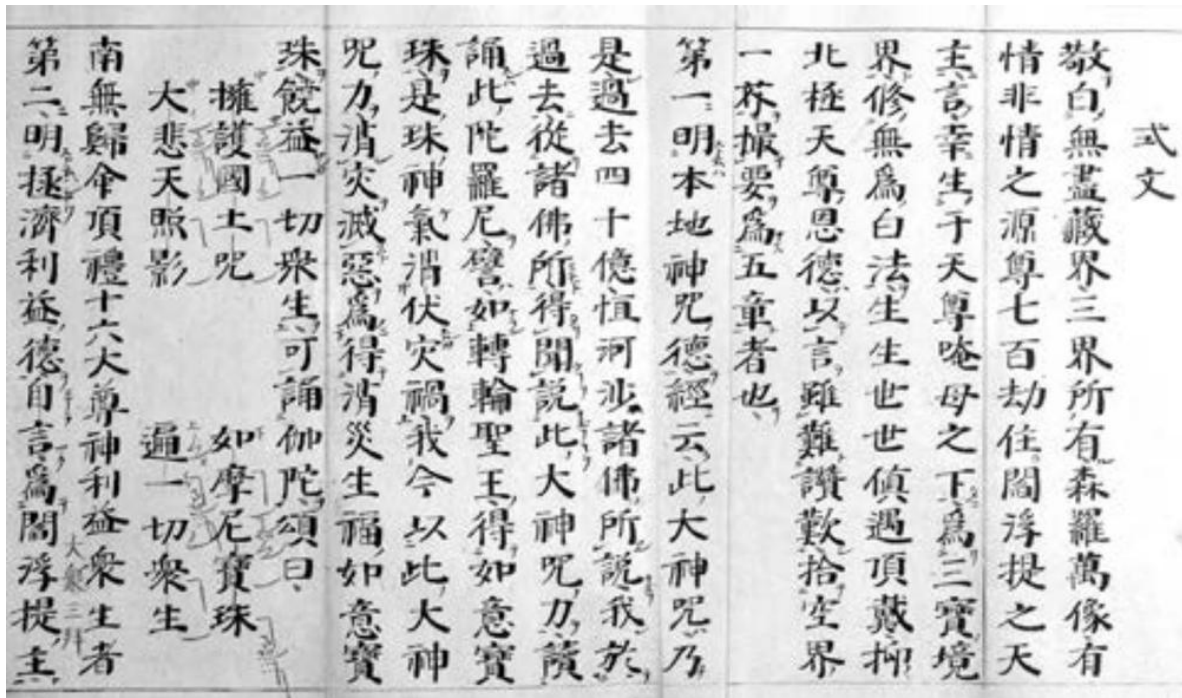 式文
敬白無盡藏界三界所有森羅萬像有
情非情之源尊七百劫住閻浮提之天
主言幸生于天尊唵母之下爲三寶境
界修無爲白法生生世世偵遇頂戴抑
北極天尊恩德以言雖難讚歎拾空界
一芥撮要爲五章者也
第一明本地神咒德經云此大神咒乃
是過去四十億恒河沙諸佛所說我於
過去從諸佛所得聞説此大神咒力讀
誦此陀羅尼譬如轉輪聖王得如意寶
珠是珠神氣消伏灾禍我今以此大神
咒力消灾滅惡爲得消災生福如意寶
珠饒益一切衆生可誦伽陀頌曰
擁護國土咒 如摩尼寶珠
大悲天照影 遍一切衆生
南無歸命頂禮十六大尊神利益衆生者
大衆三拜
第二明拯濟利益德自言爲閻浮提主